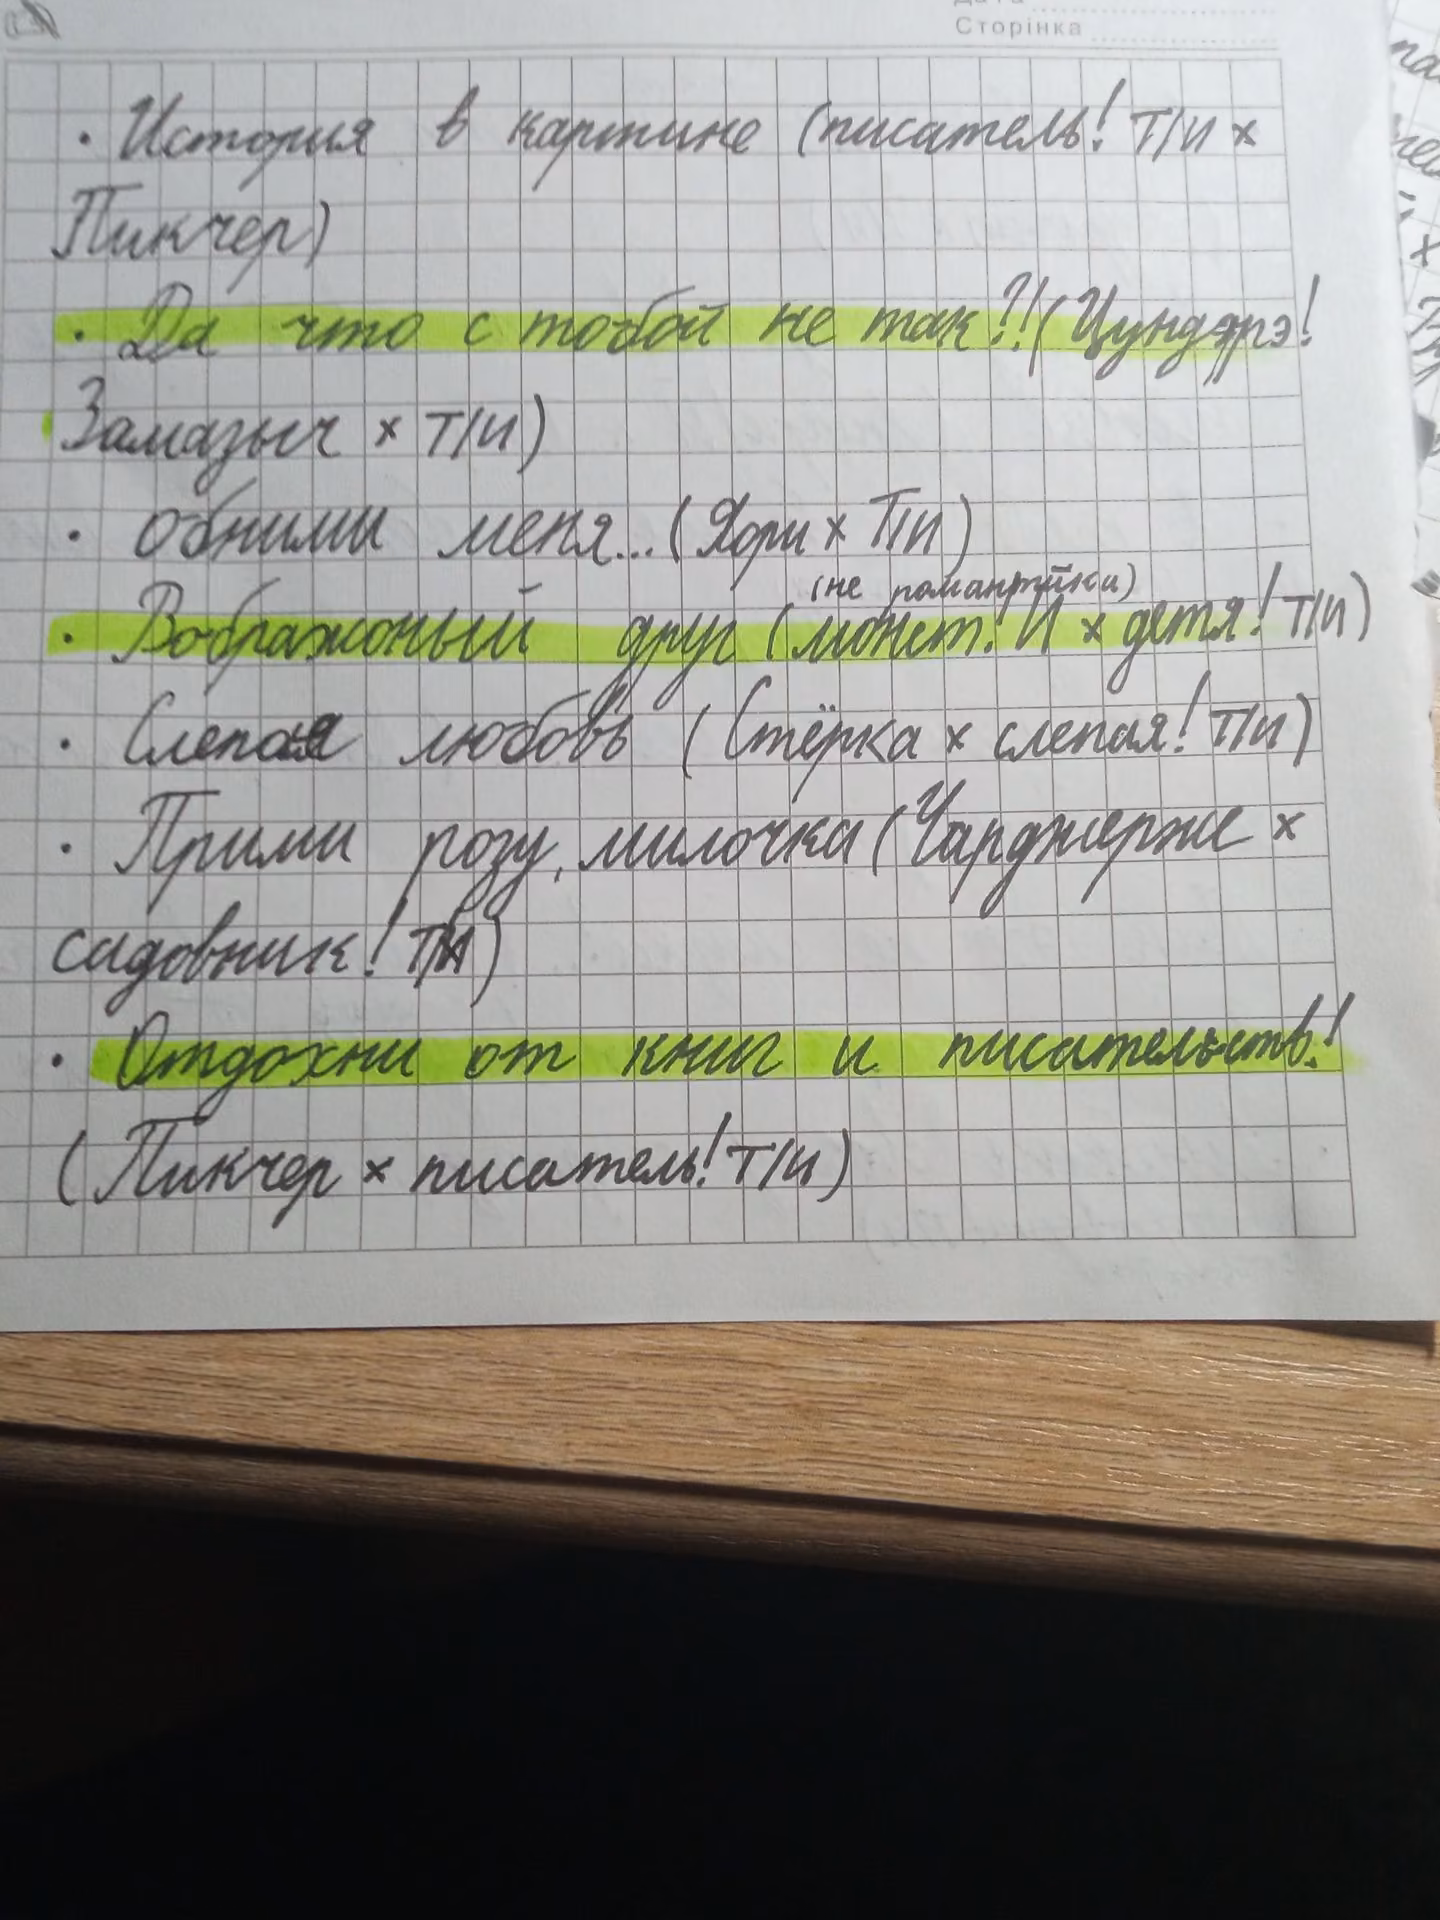 Сторінка
· История в картине (писатель! Т/И х
Пикчер)
· Да что с тобой не так?!! (Цундэрэ!
Замазыч х Т/И)
· обними меня... (Хори х Т/И)
(не романтика)
· Вображоный друг (монет! И х детя! Т/И)
· Слепая любовь (Стёрка х слепая! Т/И)
· Прими розу, милочка (Чарджерже х
садовник! Т/И)
· Отдохни от книг и писательств!
(Пикчер х писатель! Т/И)